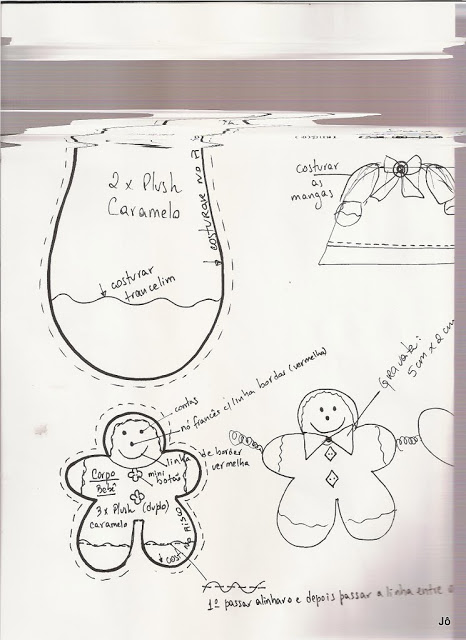 2 x Plush
Caramelo
costurar no
costurar
trancelim
costurar
as
mangas
Gravata:
5cm x 2cm
contas
nó francês c/ linha bordar (vermelha)
linha de bordar
vermelha
Corpo
Bebê
mini
botão
3 x Plush (duplo)
caramelo
no RISCO
1º passar alinhavo e depois passar a linha entre
Jô